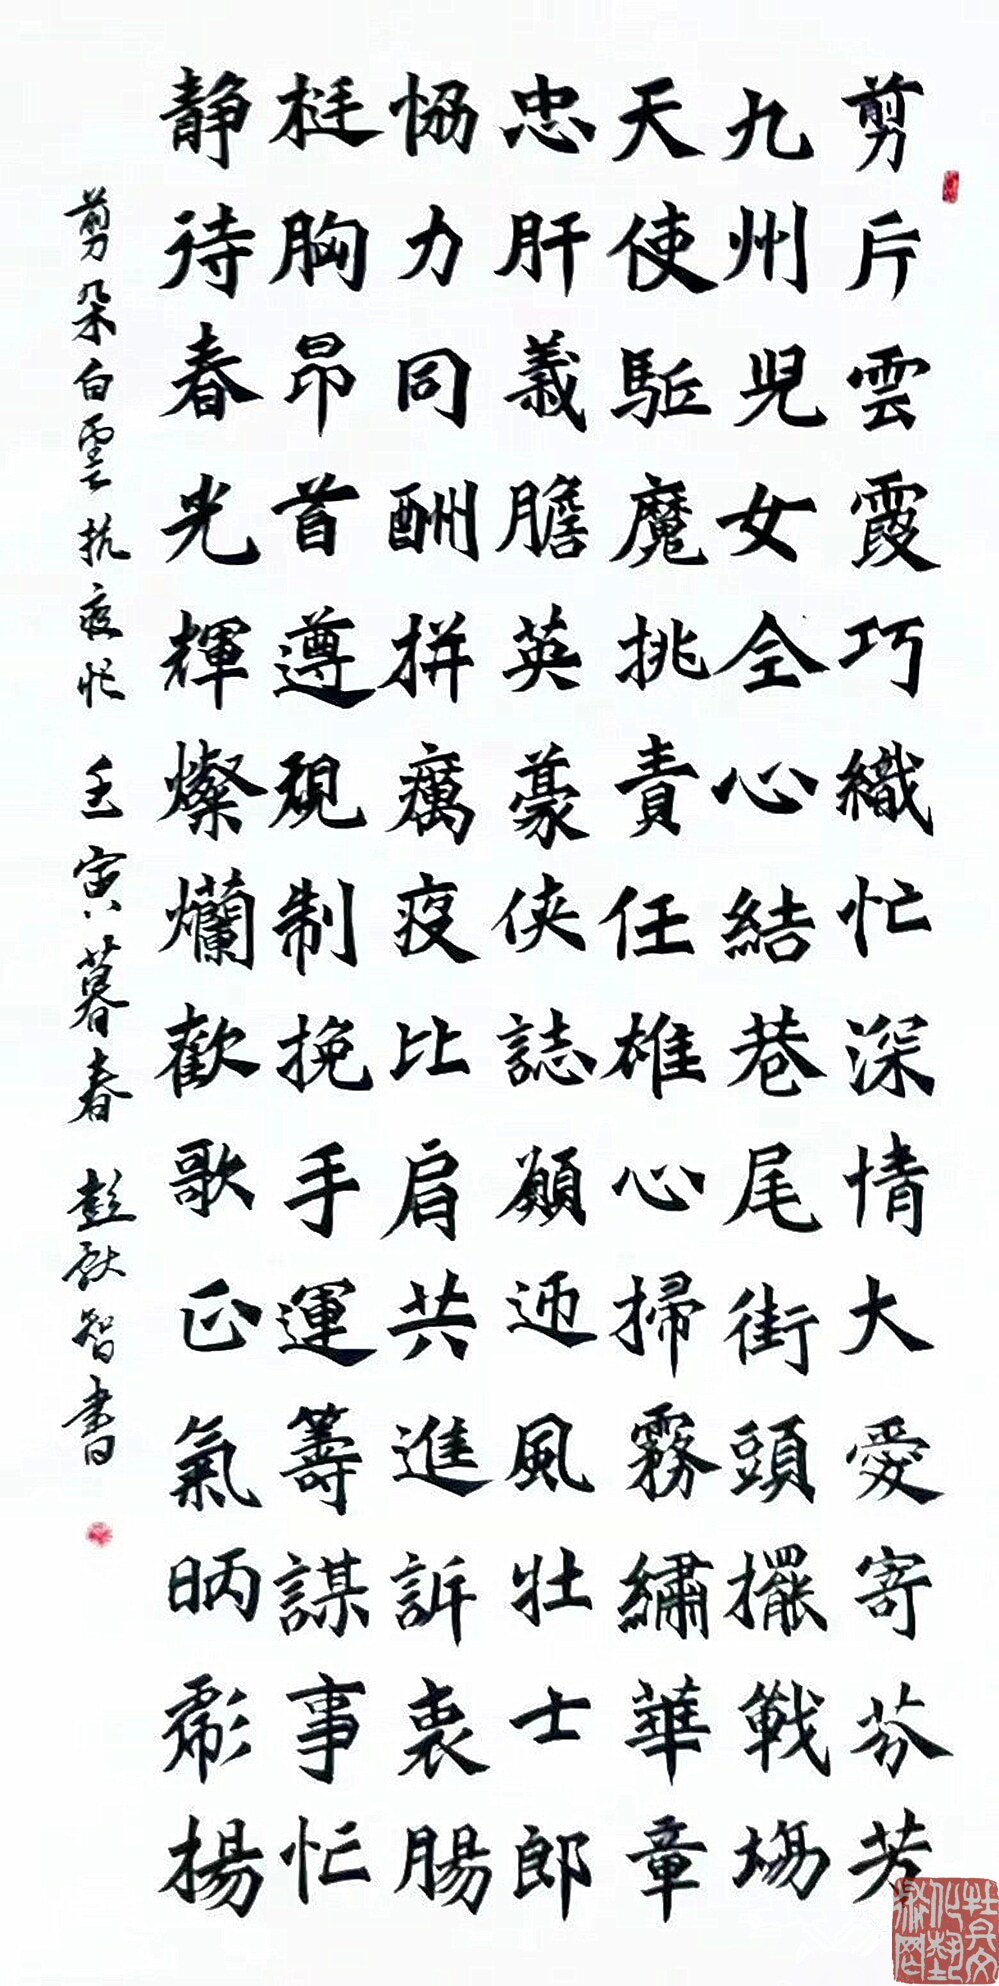 剪片雲霞巧織忙深情大愛寄芬芳
九州兒女全心結巷尾街頭擺戰場
天使駈魔挑責任雄心掃霧繡華章
忠肝義膽英豪俠誌願迎風壯士郎
協力同酬拼癘疫比肩共進訴衷腸
挺胸昂首遵規制挽手運籌謀事忙
靜待春光輝燦爛歡歌正氣昞彰揚
剪朶白雲抗疫忙 壬寅暮春 彭獻智書